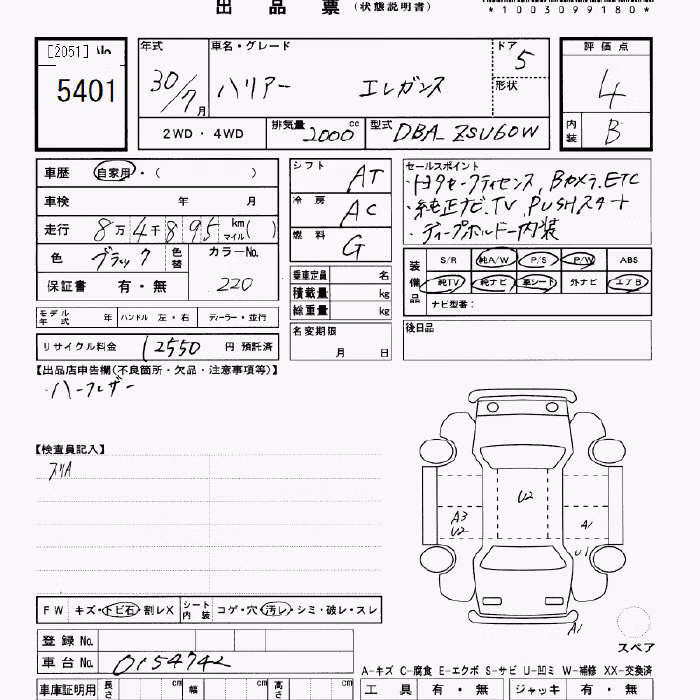 出 品 票 (状態説明書)
*1003099180*
[2051] No
5401
年式 30/7月
車名・グレード ハリアー エレガンス
ドア 5
形状
評価点 4
内装 B
2WD・4WD
排気量 2000 cc
型式 DBA ZSU60W
車歴 自家用・( )
車検 年 月
走行 8万4千895 km マイル( )
色 ブラック 色替 カラーNo. 220
保証書 有・無
シフト AT
冷房 AC
燃料 G
乗車定員 名
積載量 kg
総重量 kg
名変期限 月 日
セールスポイント
・トヨタセーフティセンス, Bカメラ, ETC
・純正ナビ, TV, PUSHスタート
・ディープボルドー内装
装備品 S/R 純A/W P/S P/W ABS
純TV 純ナビ 革シート 外ナビ エアB
ナビ型車:
後日品
モデル年式 年 ハンドル 左・右 ディーラー・並行
リサイクル料金 12550 円 預託済
【出品店申告欄(不良箇所・欠品・注意事項等)】
・ハーフレザー
【検査員記入】
スリA
U2
A3
U2
A1
U1
A1
スペア
FW キズ・トビ石・割レX
シート内装 コゲ・穴・汚レ・シミ・破レ・スレ
登録 No.
車台 No. 0154742
A−キズ C−腐食 E−エクボ S−サビ U−凹ミ W−補修 XX−交換済
車庫証明用 長さ cm 幅 cm 高さ cm
工具 有・無 ジャッキ 有・無